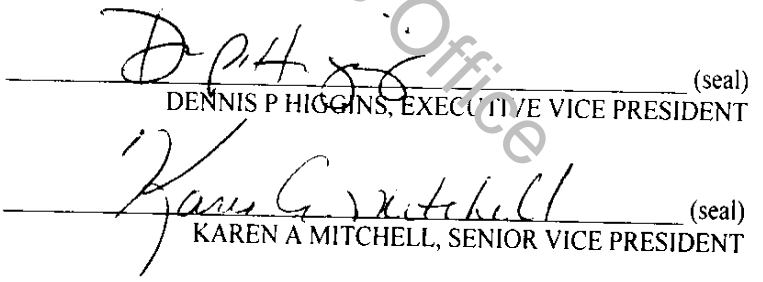 Office
(seal)
DENNIS P HIGGINS, EXECUTIVE VICE PRESIDENT
Karen A Mitchell (seal)
KAREN A MITCHELL, SENIOR VICE PRESIDENT